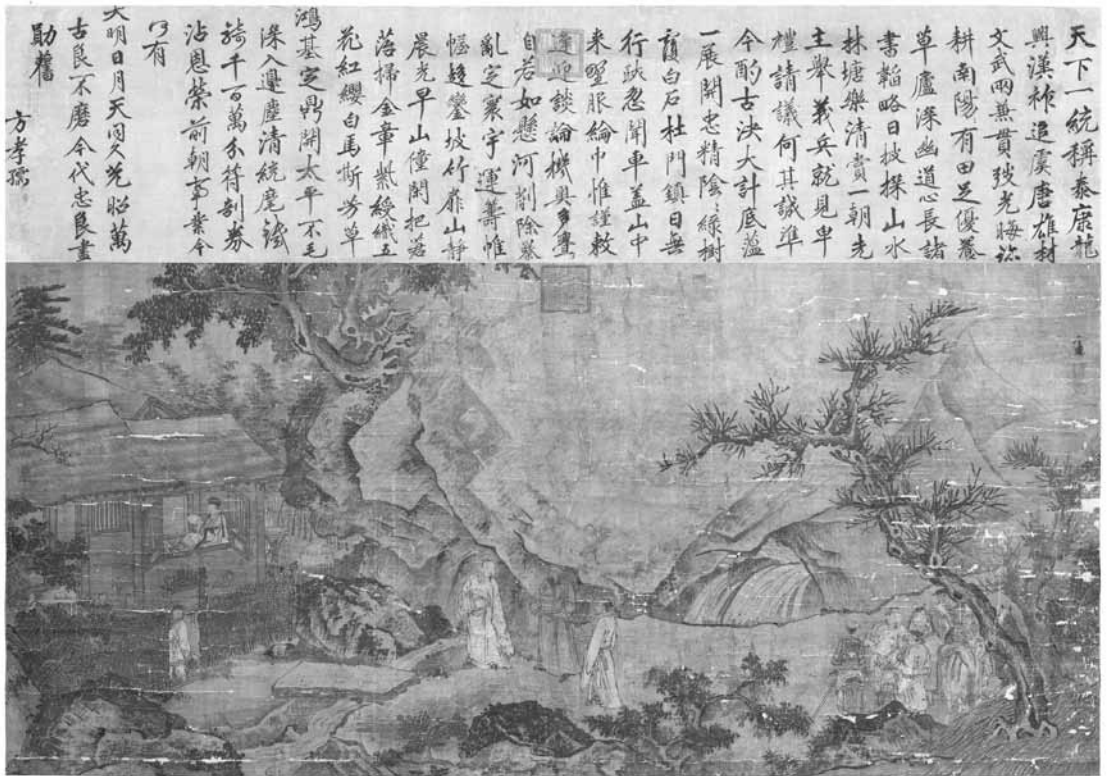 天下一統稱泰康龍
興漢祚追虞唐雄材
文武兩兼貫弢光晦跡
耕南陽有田足優養
草廬深幽道心長諸
書韜略日披探山水
林塘樂清賞一朝先
主舉義兵就見卑
禮請議何其誠準
今酌古決大計底蘊
一展開忠精陰〻綠樹
覆白石杜門鎮日無
行跡忽聞車蓋山中
來野服綸巾惟謹敕
逢迎談論機奧多
自若如懸河削除暴
亂定寰宇運籌帷
幄趨鑾坡竹扉山靜
晨光早山僮開把
落掃金章紫綬織五
花紅纓白馬斯芳草
鴻基定鼎開太平不毛
深入邊塵清統麾鐵
騎千百萬分符剖券
沾恩榮前朝事業今
何有
大明日月天同久光昭萬
古良不磨今代忠良畫
勛舊
方孝孺